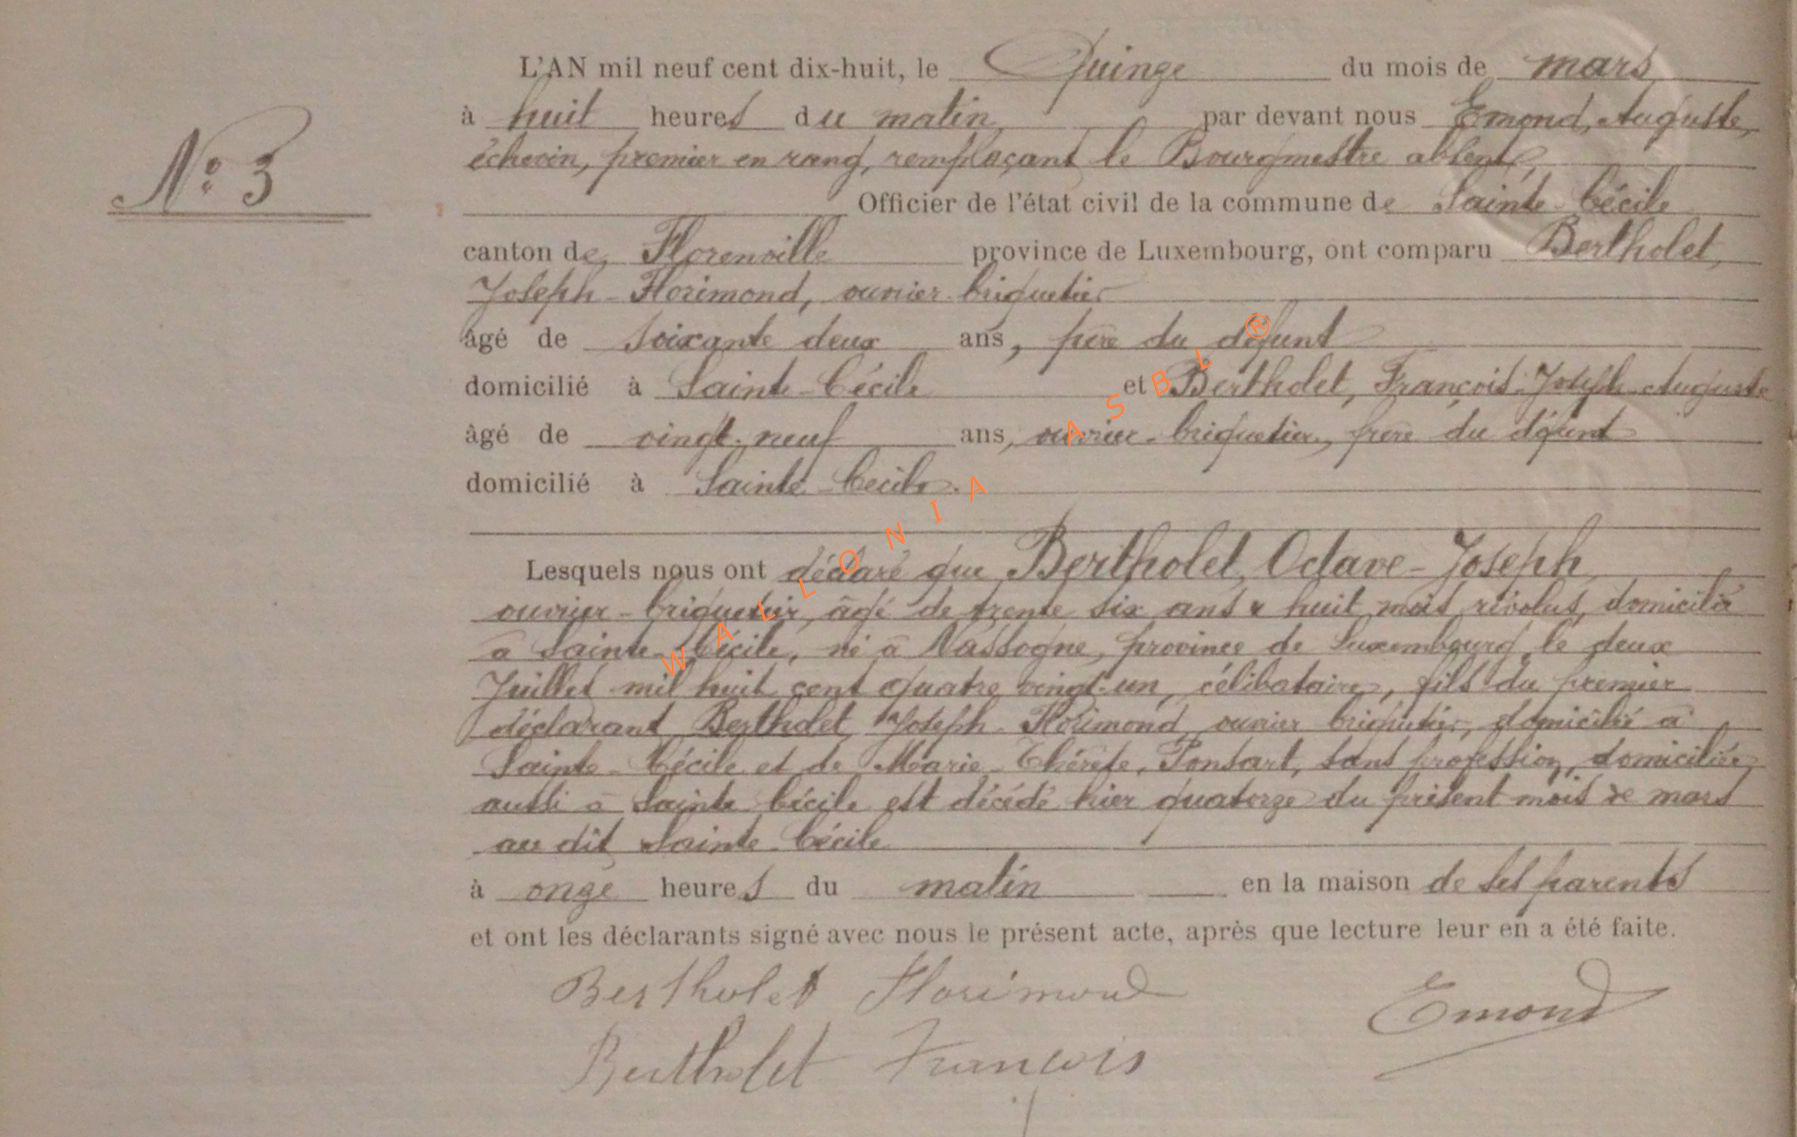 L'AN mil neuf cent dix-huit, le Quinze du mois de mars
à huit heures du matin par devant nous Emond, Auguste,
N° 3
échevin, premier en rang, remplaçant le Bourgmestre absent,
Officier de l'état civil de la commune de Sainte-Cécile
canton de Florenville province de Luxembourg, ont comparu Bertholet,
Joseph-Florimond, ouvrier-briquetier
âgé de soixante deux ans, père du défunt
domicilié à Sainte-Cécile et Bertholet, François-Joseph-Auguste
âgé de vingt-neuf ans, ouvrier-briquetier, frère du défunt
domicilié à Sainte-Cécile.
Lesquels nous ont déclaré que Bertholet, Octave-Joseph
ouvrier-briquetier, âgé de trente six ans & huit mois révolus, domicilié
à Sainte-Cécile, né à Nassogne, province de Luxembourg, le deux
Juillet mil huit cent quatre vingt-un, célibataire, fils du premier
déclarant Bertholet Joseph-Florimond, ouvrier briquetier, domicilié à
Sainte-Cécile et de Marie-Thérèse, Ponsart, sans profession, domiciliée
aussi à Sainte Cécile est décédé hier quatorze du présent mois de mars
au dit Sainte-Cécile
à onze heures du matin en la maison de ses parents
et ont les déclarants signé avec nous le présent acte, après que lecture leur en a été faite.
Bertholet Florimond
Emond
Bertholet François
WALLONIA ASBL ®